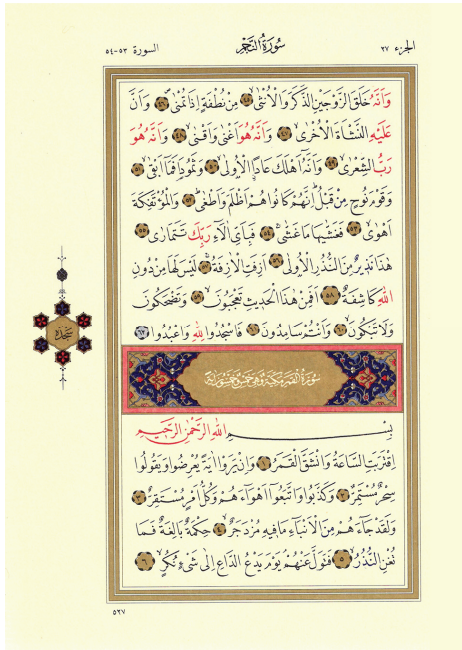 الجزء ٢٧
سورة النجم
السورة ٥٣-٥٤
وَاَنَّهُ خَلَقَ الزَّوْجَيْنِ الذَّكَرَ وَالْاُنْثٰى ﴿٤٥﴾ مِنْ نُطْفَةٍ اِذَا تُمْنٰى ﴿٤٦﴾ وَاَنَّ
عَلَيْهِ النَّشْاَةَ الْاُخْرٰى ﴿٤٧﴾ وَاَنَّهُ هُوَ اَغْنٰى وَاَقْنٰى ﴿٤٨﴾ وَاَنَّهُ هُوَ
رَبُّ الشِّعْرٰى ﴿٤٩﴾ وَاَنَّهُ اَهْلَكَ عَادًا الْاُولٰى ﴿٥٠﴾ وَثَمُودَا فَمَا اَبْقٰى ﴿٥١﴾
وَقَوْمَ نُوحٍ مِنْ قَبْلُ اِنَّهُمْ كَانُوا هُمْ اَظْلَمَ وَاَطْغٰى ﴿٥٢﴾ وَالْمُؤْتَفِكَةَ
اَهْوٰى ﴿٥٣﴾ فَغَشّٰيهَا مَا غَشّٰى ﴿٥٤﴾ فَبِاَيِّ اٰلَاءِ رَبِّكَ تَتَمَارٰى ﴿٥٥﴾
هٰذَا نَذِيرٌ مِنَ النُّذُرِ الْاُولٰى ﴿٥٦﴾ اَزِفَتِ الْاٰزِفَةُ ﴿٥٧﴾ لَيْسَ لَهَا مِنْ دُونِ
اللّٰهِ كَاشِفَةٌ ﴿٥٨﴾ اَفَمِنْ هٰذَا الْحَدِيثِ تَعْجَبُونَ ﴿٥٩﴾ وَتَضْحَكُونَ
وَلَا تَبْكُونَ ﴿٦٠﴾ وَاَنْتُمْ سَامِدُونَ ﴿٦١﴾ فَاسْجُدُوا لِلّٰهِ وَاعْبُدُوا ﴿٦٢﴾
سجده
سورة القمر مكية وهي خمس وخمسون آية
بِسْمِ اللّٰهِ الرَّحْمٰنِ الرَّحِيمِ
اِقْتَرَبَتِ السَّاعَةُ وَانْشَقَّ الْقَمَرُ ﴿١﴾ وَاِنْ يَرَوْا اٰيَةً يُعْرِضُوا وَيَقُولُوا
سِحْرٌ مُسْتَمِرٌّ ﴿٢﴾ وَكَذَّبُوا وَاتَّبَعُوا اَهْوَاءَهُمْ وَكُلُّ اَمْرٍ مُسْتَقِرٌّ ﴿٣﴾
وَلَقَدْ جَاءَهُمْ مِنَ الْاَنْبَاءِ مَا فِيهِ مُزْدَجَرٌ ﴿٤﴾ حِكْمَةٌ بَالِغَةٌ فَمَا
تُغْنِ النُّذُرُ ﴿٥﴾ فَتَوَلَّ عَنْهُمْ يَوْمَ يَدْعُ الدَّاعِ اِلٰى شَيْءٍ نُكُرٍ ﴿٦﴾
٥٢٧